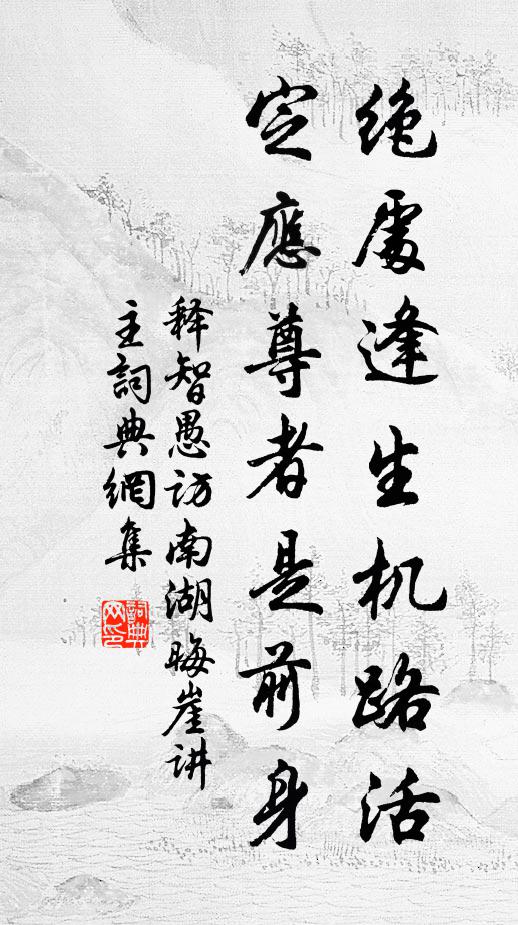 绝處逢生机路活
定應尊者是前身
释智愚访南湖晦崖讲
主詞典網集
詞典
网印